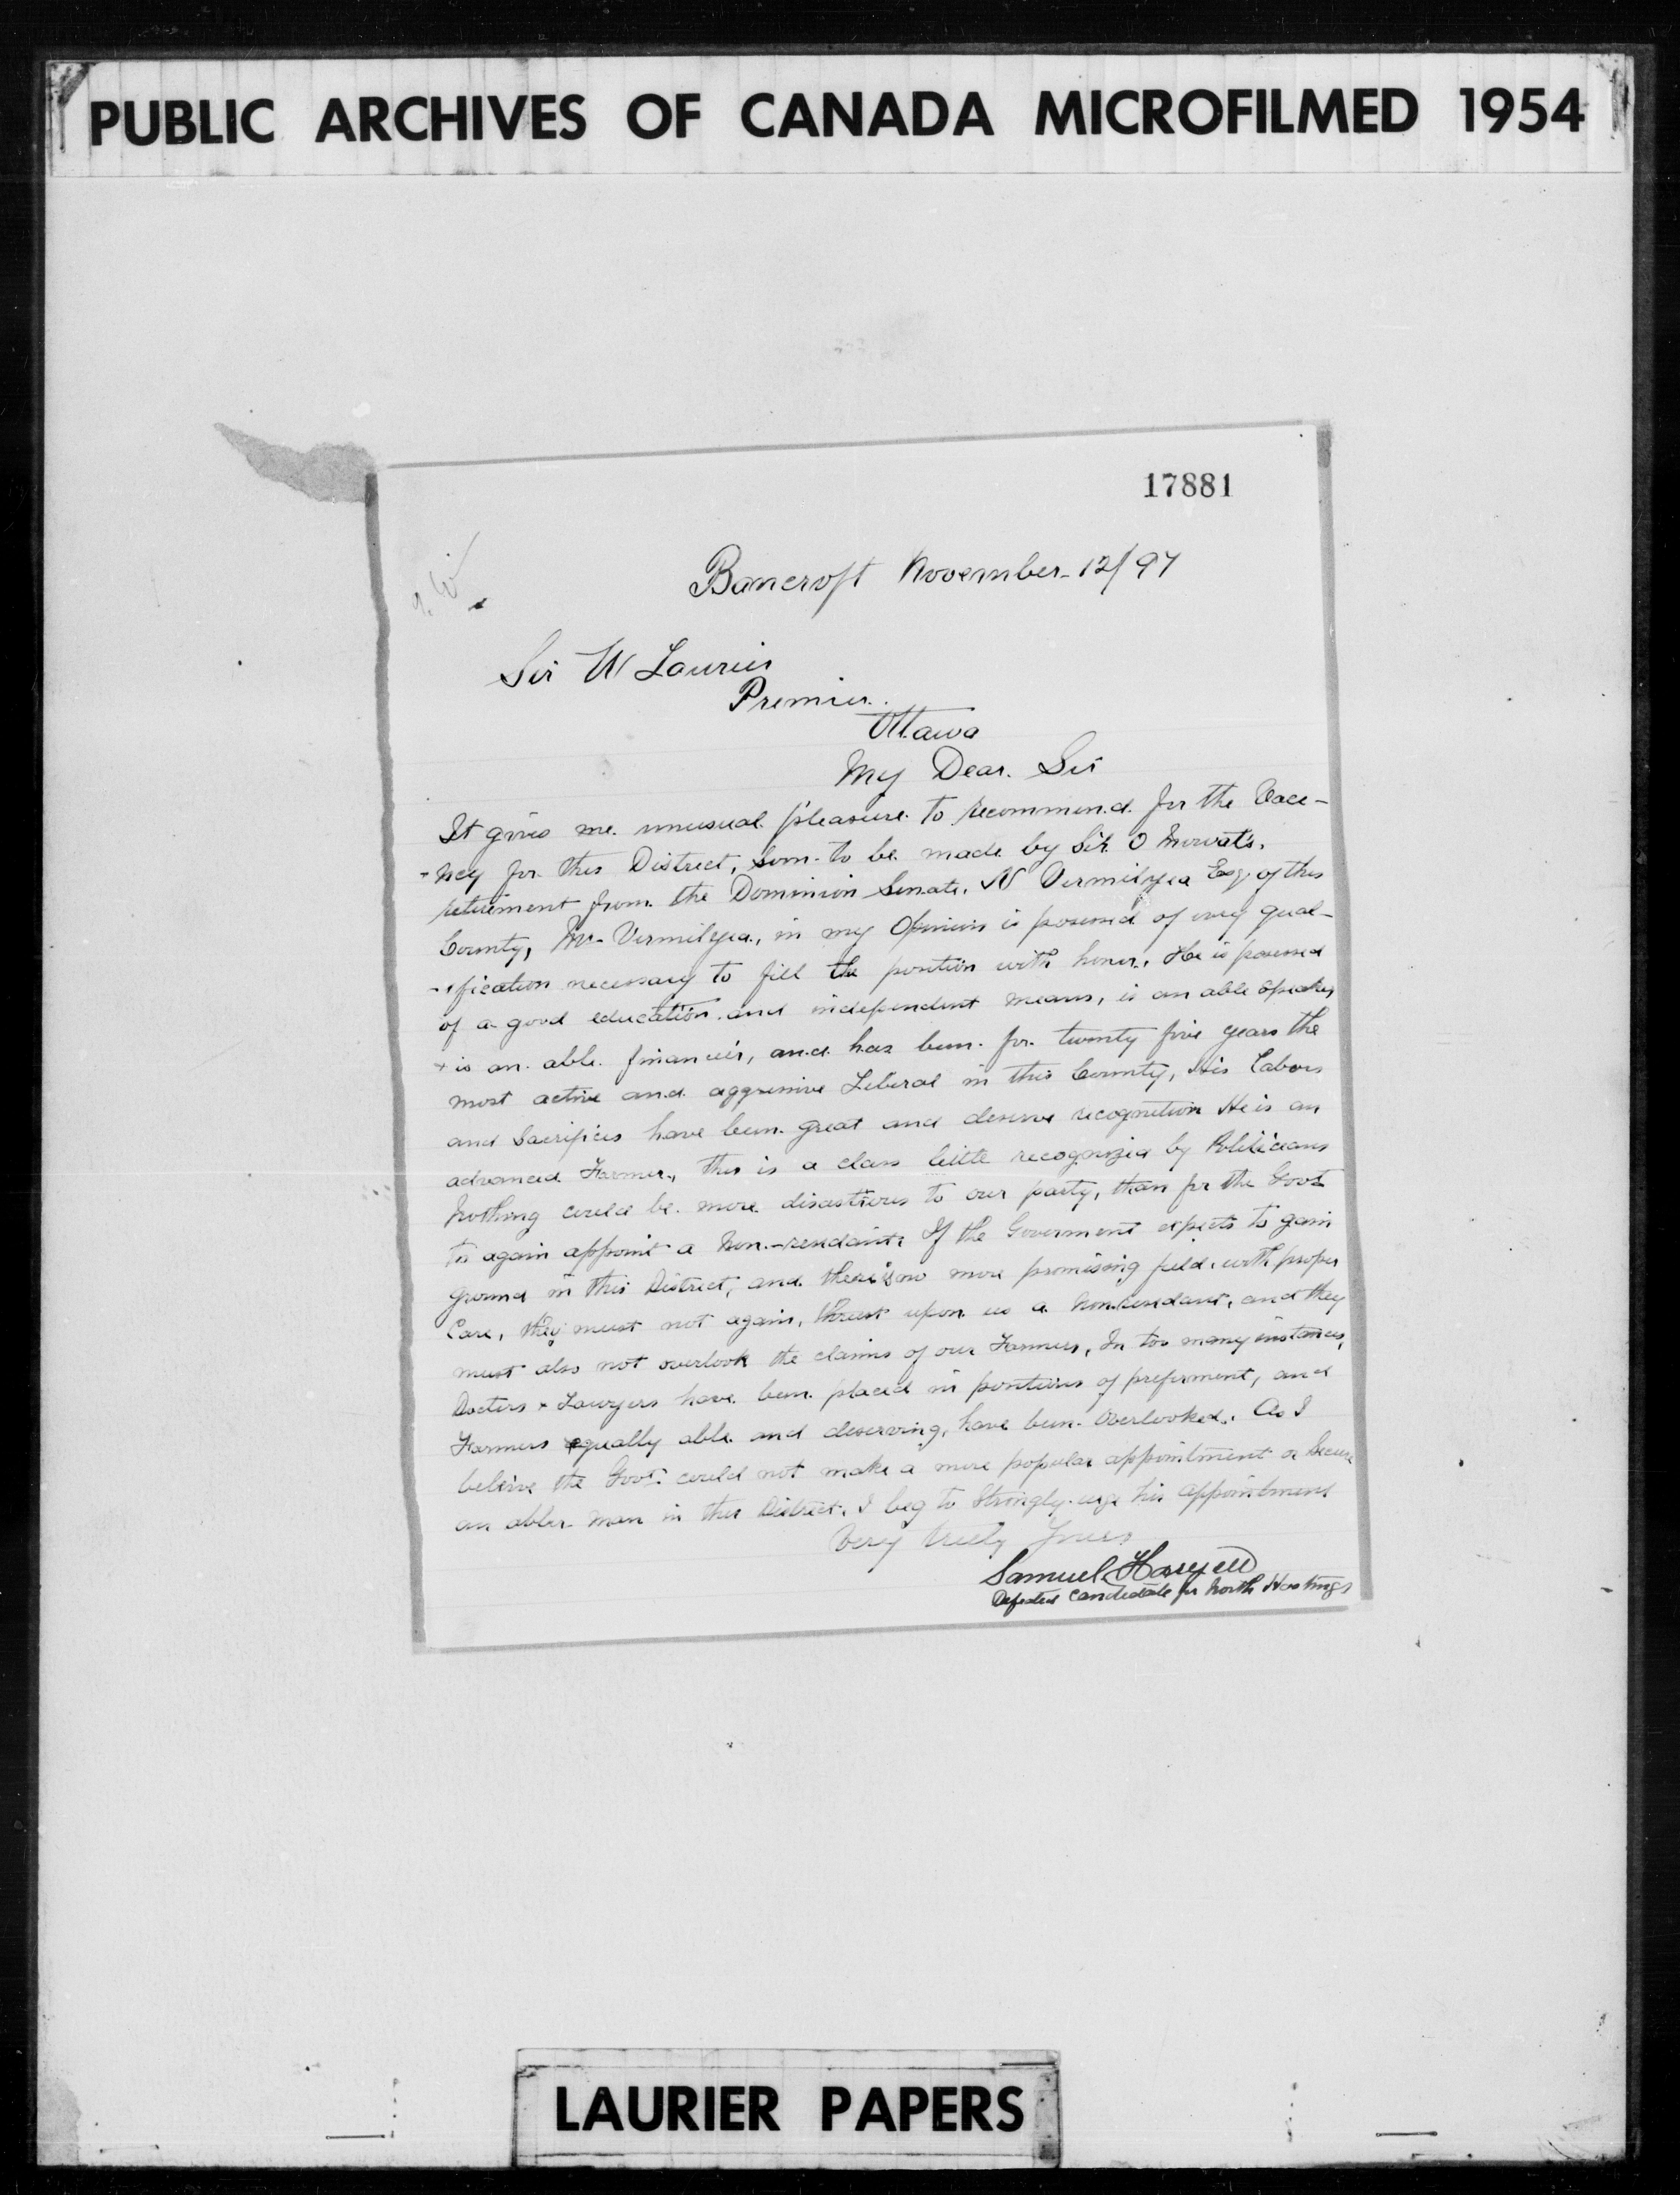 PUBLIC ARCHIVES OF CANADA MICROFILMED 1954
17881
Bancroft November-12/97
Sir W Laurier
Premier.
Ottawa
My Dear. Sir
It gives me unusual pleasure to recommend for the Vaca-
-ncy for this District, soon to be made by Sir O Mowat's.
retirement from the Dominion Senate. N Vermilyea Esq of this
County, Mr- Vermilyea, in my Opinion is possessed of every qual-
-ification necessary to fill the position with honor. He is possessed
of a good education and independent means, is an able Speaker
+ is an able financier, and has been for twenty five years the
most active and aggressive Liberal in this County, His Labors
and Sacrifices have been great and deserve recognition He is an
advanced Farmer, this is a class little recognized by Politicians
Nothing could be more disastrous to our party, than for the Govt
to again appoint a Non-residant. If the Goverment expects to gain
ground in this District, and there is no more promising field, with proper
Care, they must not again, thrust upon us a Nonresidant, and they
must also not overlook the claims of our Farmers, In too many instances,
Doctors + Lawyers have been placed in positions of preferment, and
Farmers equally able and deserving, have been Overlooked. As I
belive the Govt. could not make a more popular appointment or Secure
an abler man in this District. I beg to Strongly urge his appointment
Very truly Yours
Samuel
Defeated Candidate for North Hastings
LAURIER PAPERS